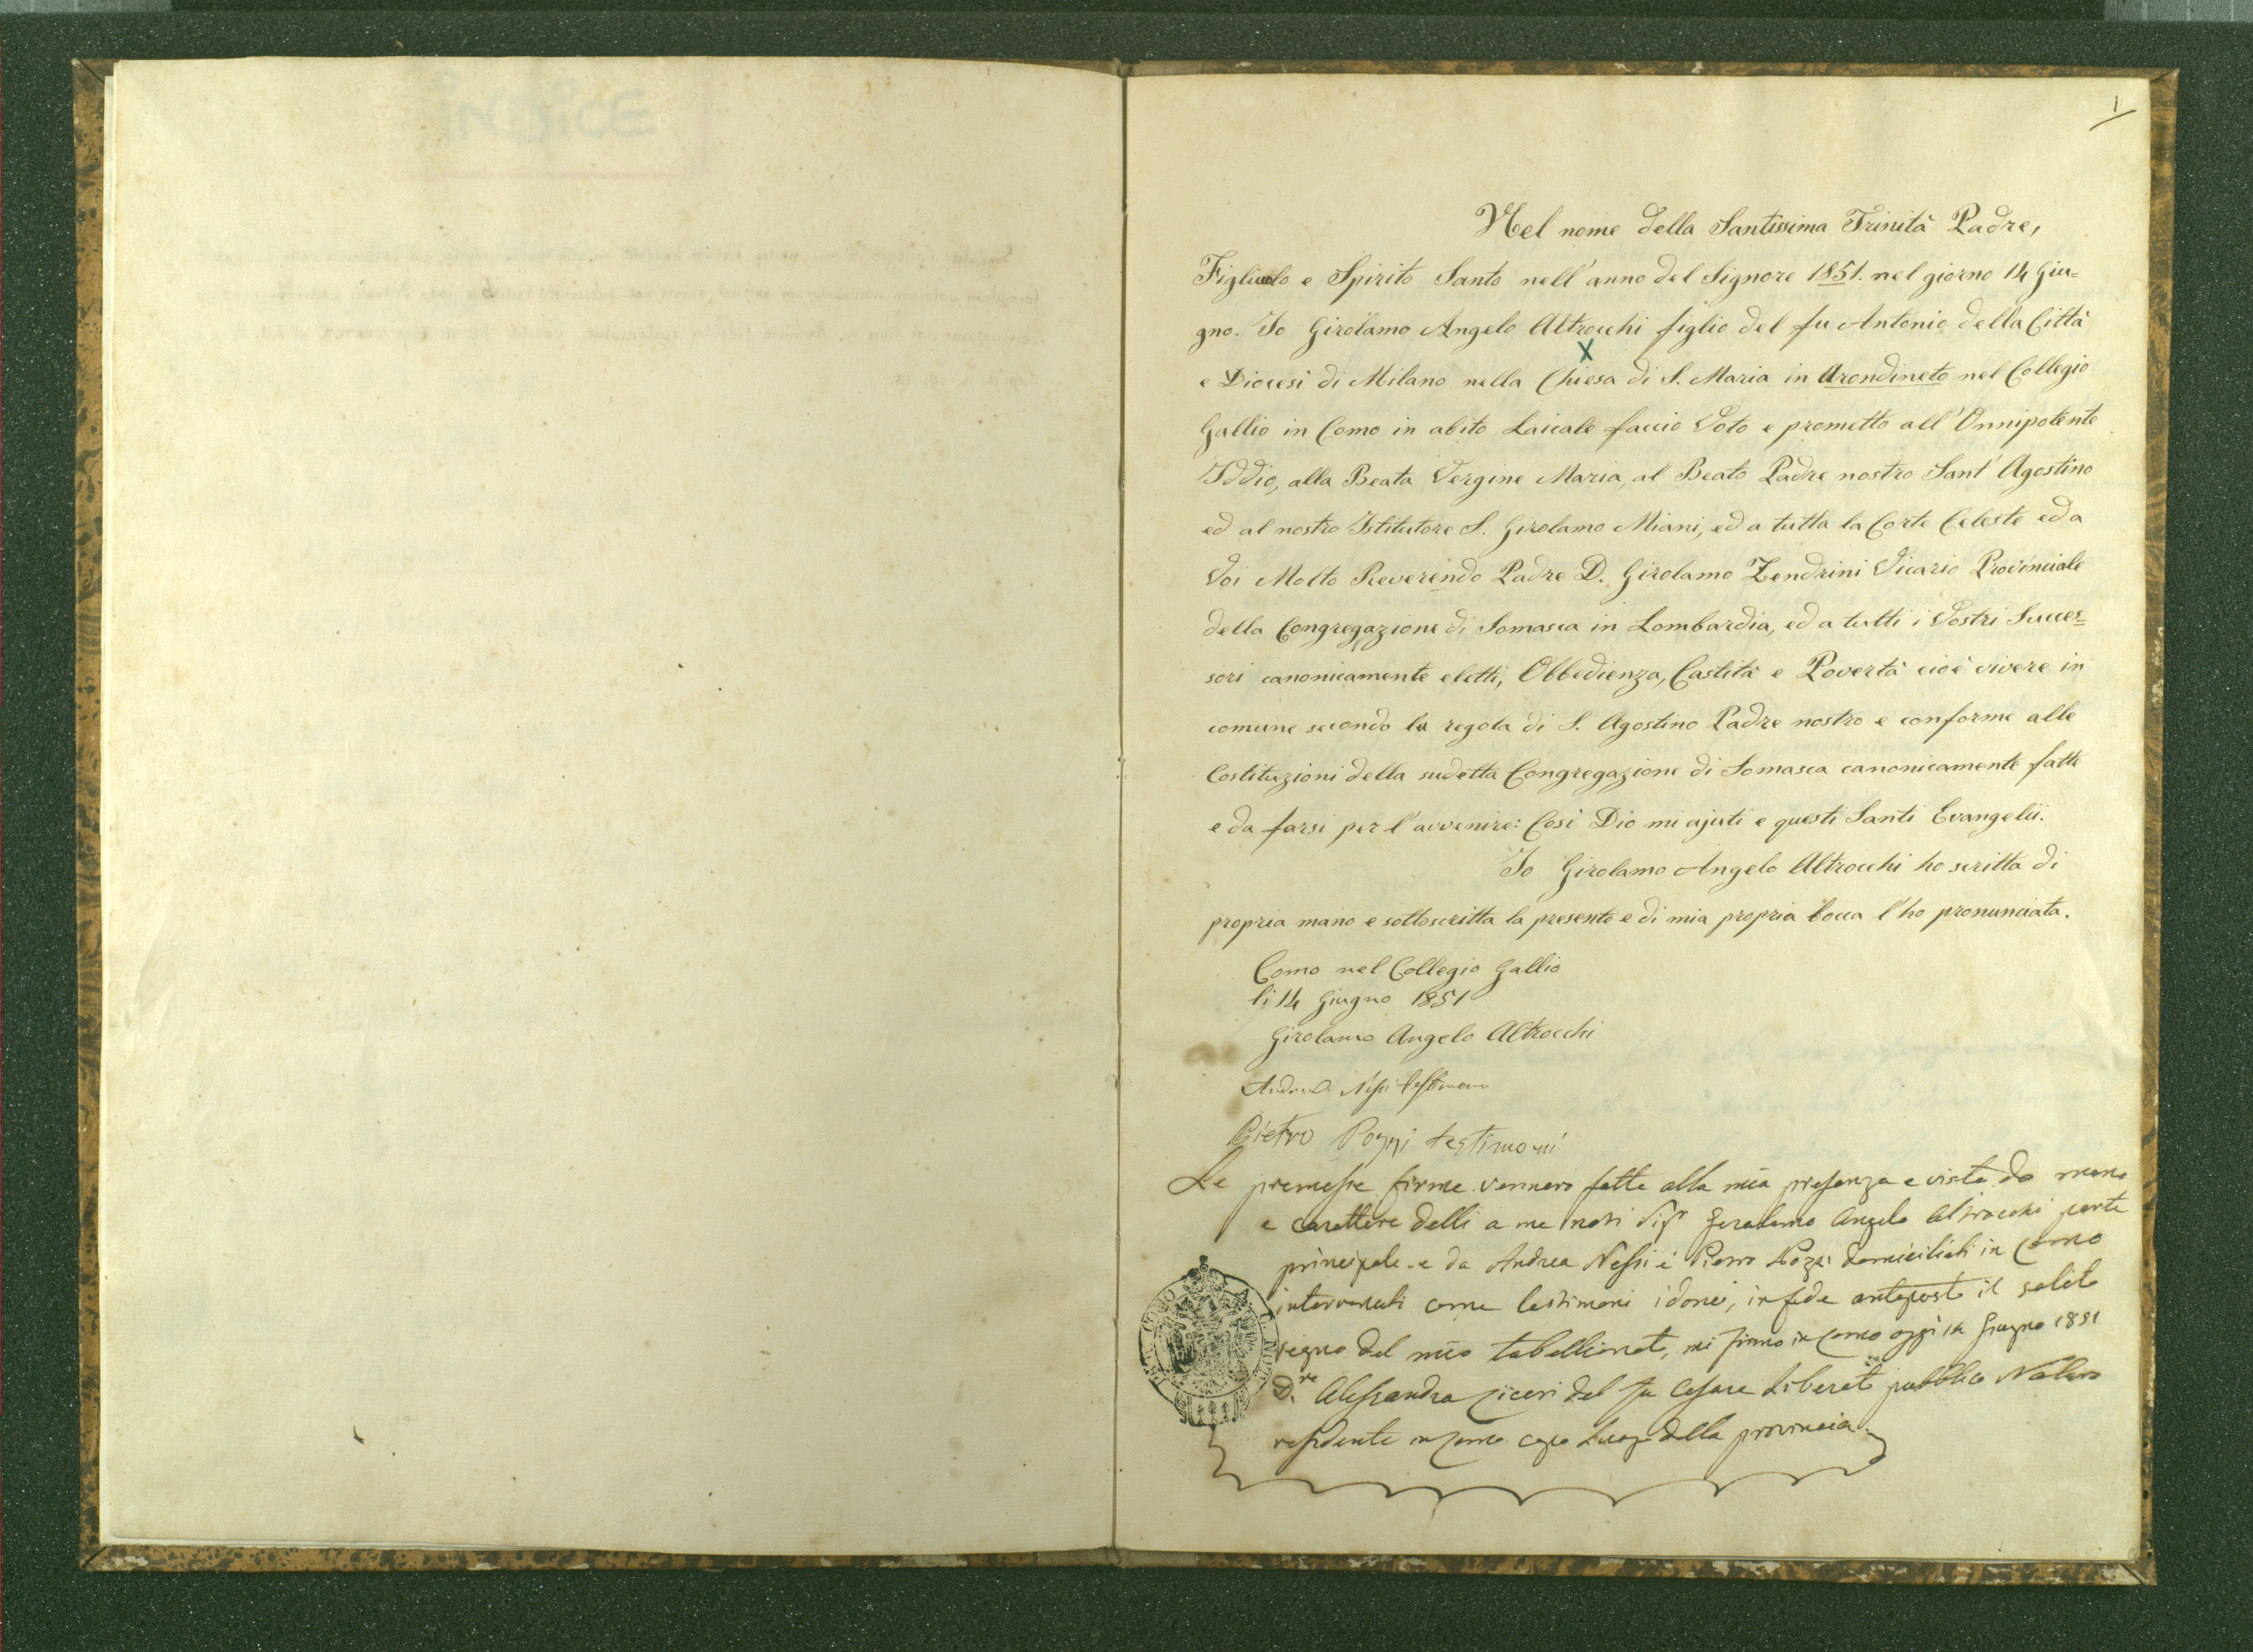 1
Nel nome della Santissima Trinità Padre,
Figliuolo e Spirito Santo nell'anno del Signore 1851. nel giorno 14 Giu=
gno. Io Girolamo Angelo Altrocchi figlio del fu Antonio della Città
X
e Diocesi di Milano nella Chiesa di S. Maria in Arondineto nel Collegio
Gallio in Como in abito Laicale faccio Voto e prometto all'Onnipotente
Iddio, alla Beata Vergine Maria, al Beato Padre nostro Sant'Agostino
ed al nostro Istitutore S. Girolamo Miani, ed a tutta la Corte Celeste ed a
Voi Molto Reverendo Padre D. Girolamo Zendrini Vicario Provinciale
della Congregazione di Somasca in Lombardia, ed a tutti i Vostri Succes=
sori canonicamente eletti, Obbedienza, Castità e Povertà cioè vivere in
comune secondo la regola di S. Agostino Padre nostro e conforme alle
Costituzioni della sudetta Congregazione di Somasca canonicamente fatte
e da farsi per l'avvenire: Così Dio mi ajuti e questi Santi Evangelii.
Io Girolamo Angelo Altrocchi ho scritta di
propria mano e sottoscritta la presente e di mia propria bocca l'ho pronunciata.
Como nel Collegio Gallio
li 14 Giugno 1851
Girolamo Angelo Altrocchi
Andrea Nessi testimonio
Pietro Pozzi testimoni
Le premesse firme vennero fatte alla mia presenza e viste da mano
e carattere delli a me noti Sigr Gerolamo Angelo Altrocchi parte
principale e da Andrea Nessi e Pietro Pozzi domiciliati in Como
intervenuti come testimoni idonei, in fede anteposto il solito
segno del mio tabellionato, mi firmo in Como oggi 14 Giugno 1851
D.re Alessandro Ciceri del fu Cesare Liberato pubblico Notaro
residente in Como capo Luogo della provincia